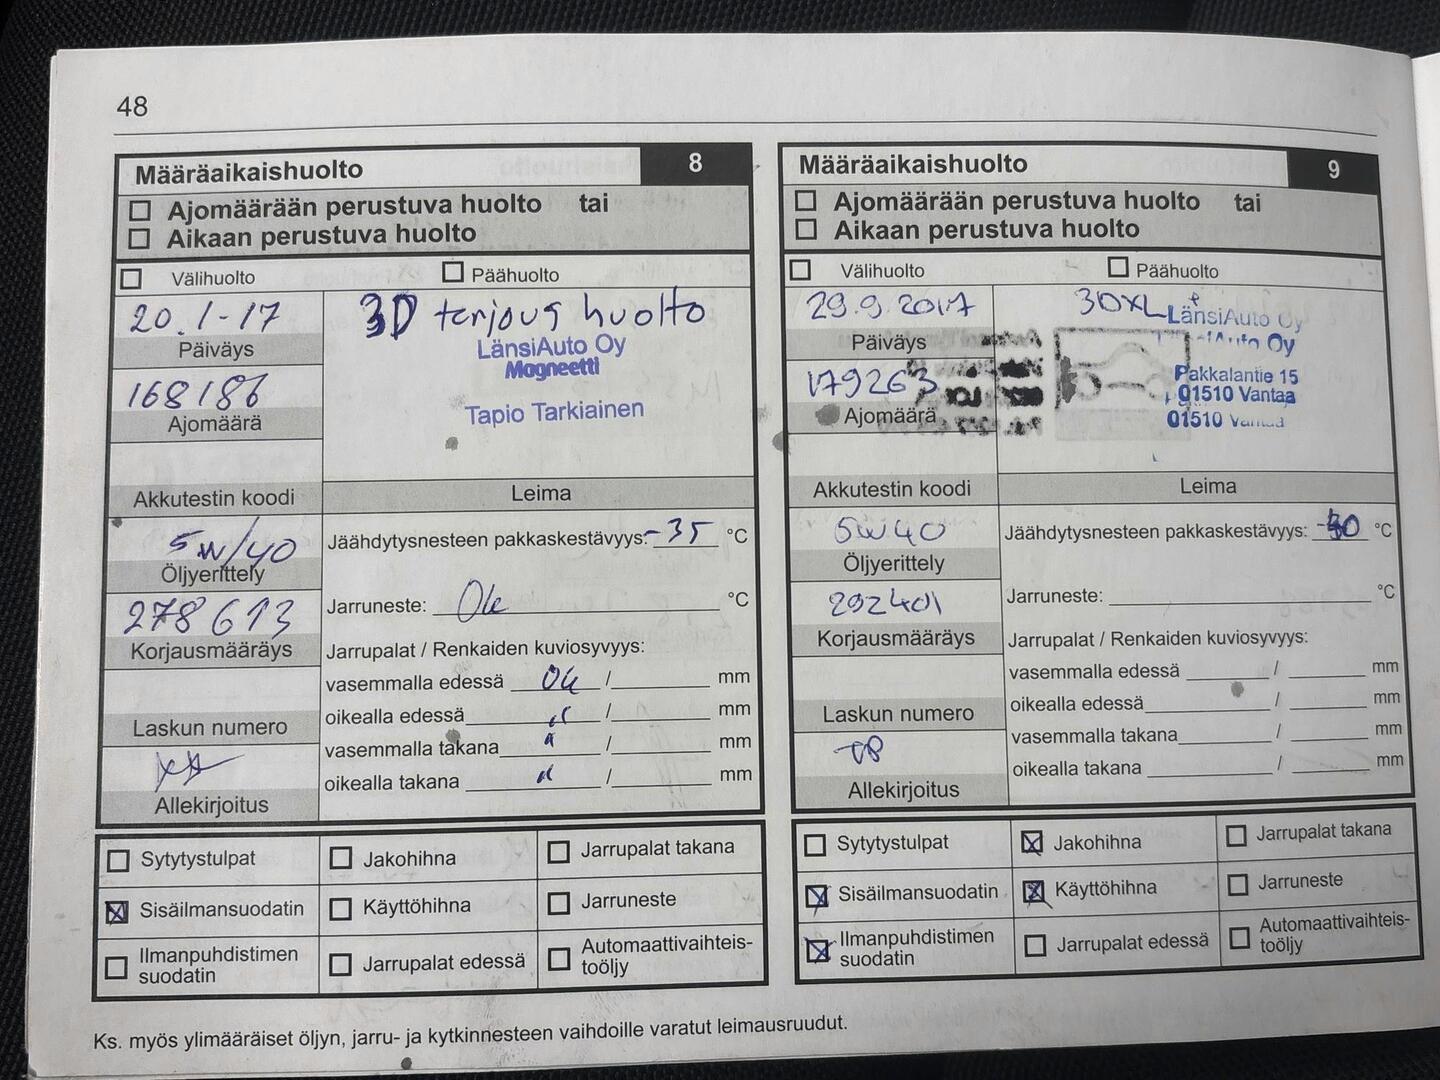 48
Määräaikaishuolto 8
Ajomäärään perustuva huolto tai
Aikaan perustuva huolto
Välihuolto Päähuolto
20.1-17
Päiväys
168186
Ajomäärä
Akkutestin koodi
3D tarjous huolto
LänsiAuto Oy
Magneetti
Tapio Tarkiainen
Leima
5w/40
Öljyerittely
278613
Korjausmääräys
Laskun numero
Allekirjoitus
Jäähdytysnesteen pakkaskestävyys: -35 °C
Jarruneste: Ok °C
Jarrupalat / Renkaiden kuviosyvyys:
vasemmalla edessä Ok / mm
oikealla edessä " / mm
vasemmalla takana " / mm
oikealla takana " / mm
Sytytystulpat Jakohihna Jarrupalat takana
Sisäilmansuodatin Käyttöhihna Jarruneste
Ilmanpuhdistimen
suodatin
Jarrupalat edessä
Automaattivaihteis-
toöljy
Määräaikaishuolto 9
Ajomäärään perustuva huolto tai
Aikaan perustuva huolto
Välihuolto Päähuolto
29.9.2017
Päiväys
179263
Ajomäärä
Akkutestin koodi
3DXL
LänsiAuto Oy
Pakkalantie 15
01510 Vantaa
01510 Vantaa
Leima
5w40
Öljyerittely
292401
Korjausmääräys
Laskun numero
Allekirjoitus
Jäähdytysnesteen pakkaskestävyys: °C
Jarruneste: °C
Jarrupalat / Renkaiden kuviosyvyys:
vasemmalla edessä / mm
oikealla edessä / mm
vasemmalla takana / mm
oikealla takana / mm
Sytytystulpat Jakohihna Jarrupalat takana
Sisäilmansuodatin Käyttöhihna Jarruneste
Ilmanpuhdistimen
suodatin
Jarrupalat edessä
Automaattivaihteis-
toöljy
Ks. myös ylimääräiset öljyn, jarru- ja kytkinnesteen vaihdoille varatut leimausruudut.